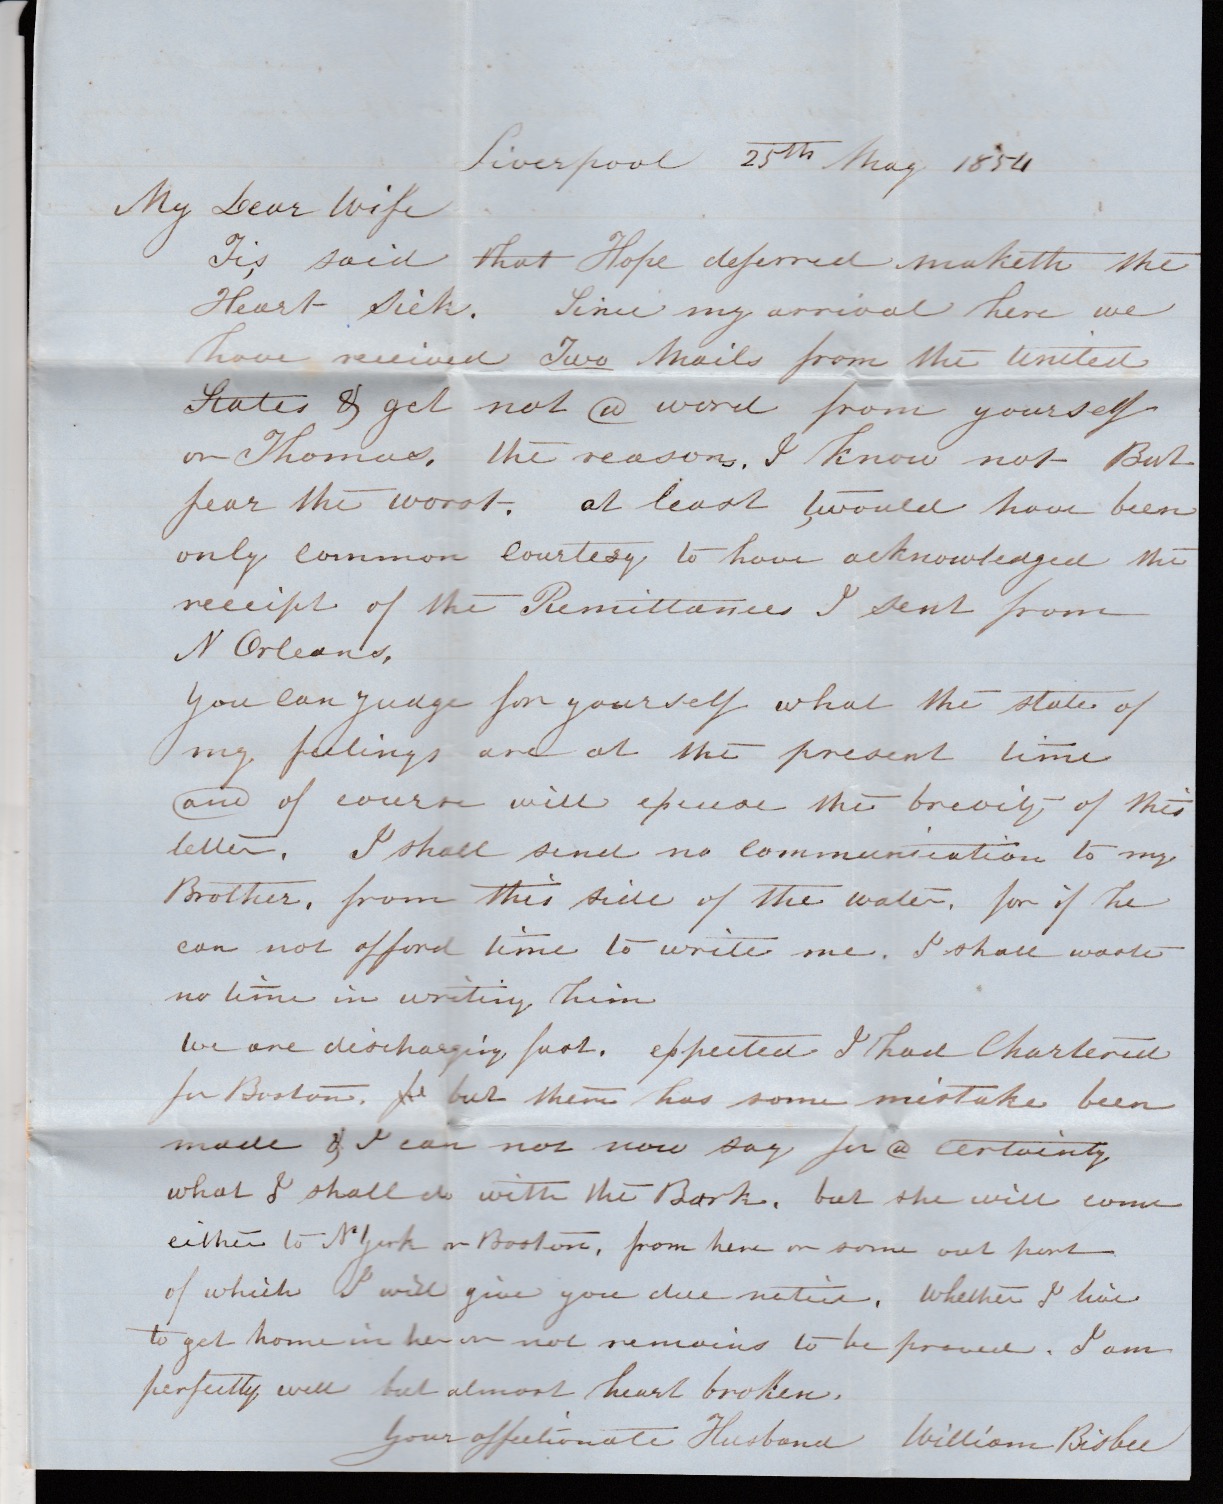 Liverpool 25th May 1854
My Dear Wife
Tis, said that Hope deferred maketh the
Heart Sick. Since my arrival here we
have received Two Mails from the United
States & get not @ word from yourself
or Thomas. the reasons. I know not But
fear the worst. at least twould have been
only common Courtesy to have acknowledged the
receipt of the Remittances I sent from
N Orleans.
You can judge for yourself what the state of
my feelings are at the present time
and of course will excuse the brevity of this
letter. I shall send no Communication to my
Brother. from this side of the water. for if he
can not afford time to write me. I shall waste
no time in writing him
We are discharging fast. expected I had Chartered
for Boston. but there has some mistake been
made & I can not now say for @ certainty
what I shall do with the Bark. but she will come
either to N York or Boston. from here or some out port
of which I will give you due notice. Whether I live
to get home in her or not remains to be proved. I am
perfectly well but almost heart broken.
Your affectionate Husband William Bisbee